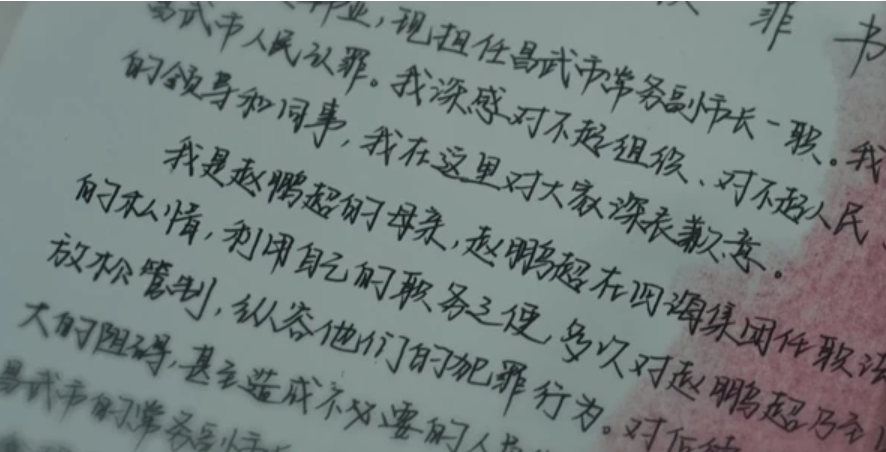 罪 书
亚，现担任昌武市常务副市长一职。我
昌武市人民认罪。我深感对不起组织、对不起人民、
的领导和同事，我在这里对大家深表歉意。
我是赵鹏超的母亲，赵鹏超在四海集团任职
的私情，利用自己的职务之便，多次对赵鹏超乃至
放松管制，纵容他们的犯罪行为。对
大的阻碍，甚至造成不必要的人
昌武市的常务副市长